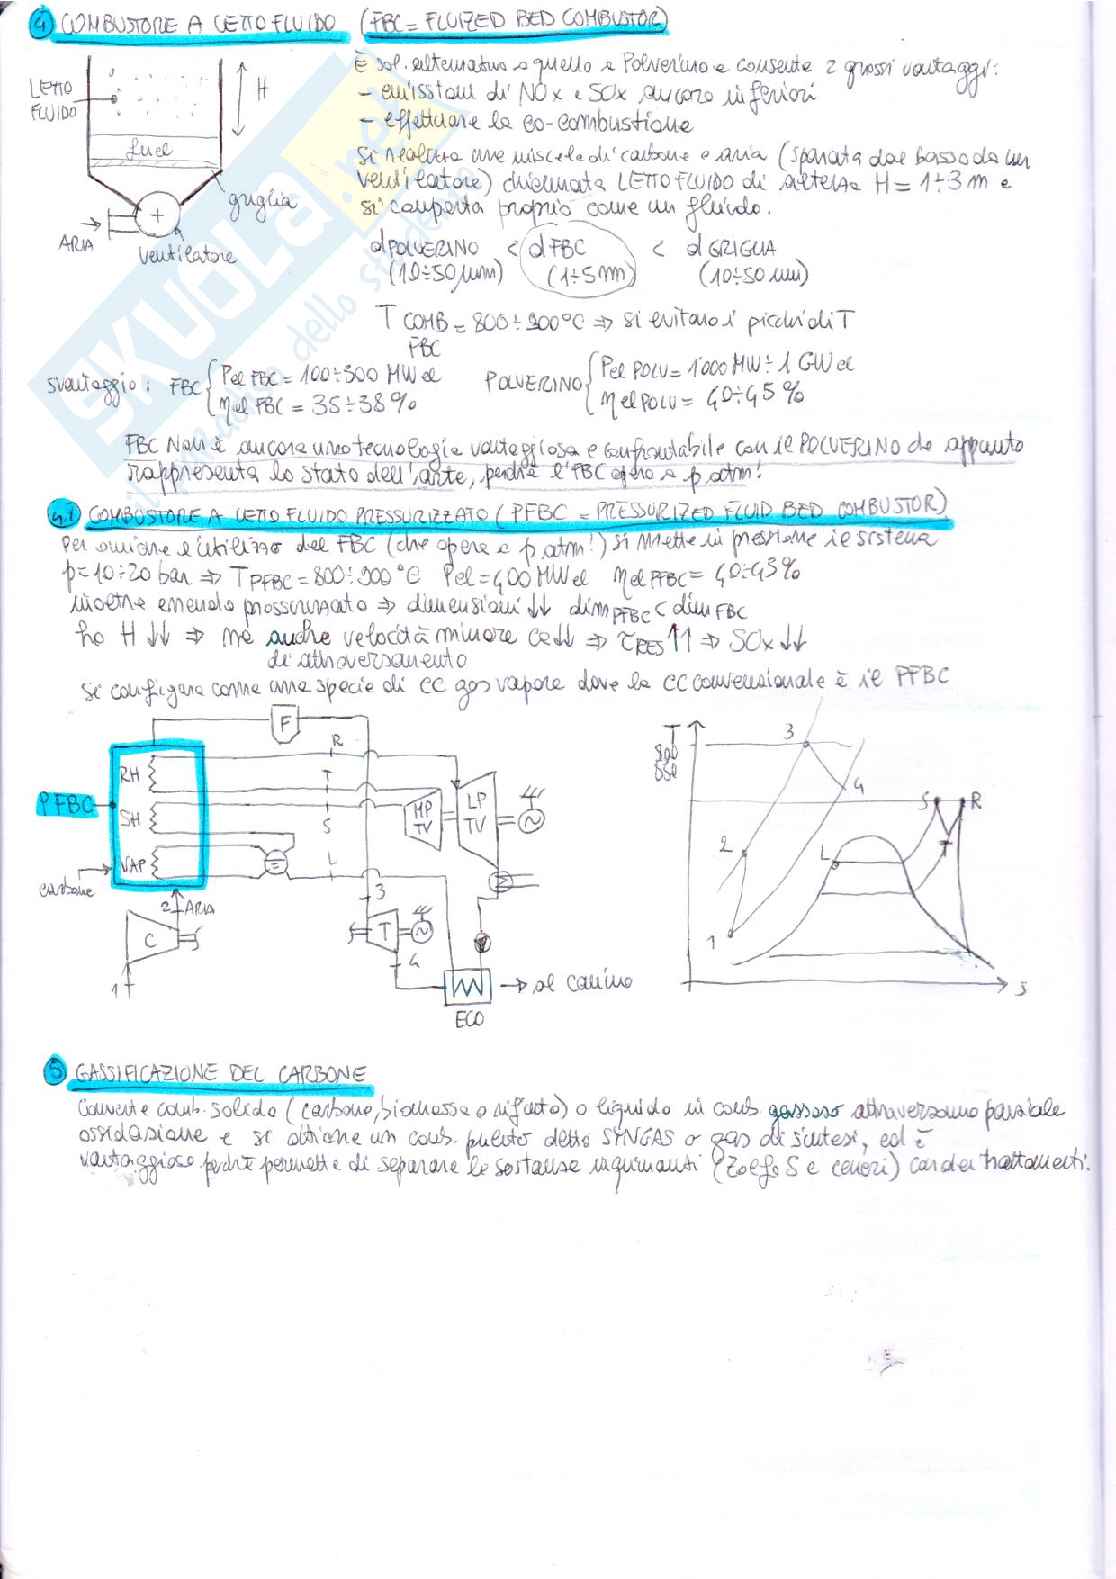 4 COMBUSTORE A LETTO FLUIDO (FBC = FLUIZED BED COMBUSTOR)
È sol. alternativa a quello a Polverino e consente 2 grossi vantaggi:
- emissioni di NOx e SOx ancora inferiori
- effettuare la co-combustione
Si realizza una miscela di carbone e aria (sparata dal basso da un
ventilatore) chiamata LETTO FLUIDO di altezza H = 1÷3 m e
si comporta proprio come un fluido.
LETTO
FLUIDO
H
fuel
griglia
ARIA
ventilatore
dPOLVERINO < dFBC < dGRIGLIA
(10÷50 μm) (1÷5 mm) (10÷50 mm)
T COMB = 800÷900°C ⇒ si evitano i picchi di T
FBC
svantaggio: FBC { Pel FBC = 100÷300 MWel POLVERINO { Pel POLV = 1000 MW ÷ 1 GWel
ηel FBC = 35÷38% ηel POLV = 40÷45%
FBC Non è ancora una tecnologia vantaggiosa e confrontabile con il POLVERINO che appunto
rappresenta lo stato dell'arte, perché l'FBC opera a p atm!
4.1 COMBUSTORE A LETTO FLUIDO PRESSURIZZATO (PFBC = PRESSURIZED FLUID BED COMBUSTOR)
Per ovviare l'utilizzo del FBC (che opera a p.atm!) si mette in pressione il sistema
p = 10÷20 bar ⇒ TPFBC = 800÷900°C Pel = 400 MWel ηel PFBC = 40÷43%
inoltre essendo pressurizzato ⇒ dimensioni ↓↓ dimPFBC < dimFBC
ho H ↓↓ ⇒ ma anche velocità minore ca↓↓ ⇒ τRES ↑↑ ⇒ SOx ↓↓
di attraversamento
Si configura come una specie di CC gas vapore dove la CC convenzionale è il PFBC
F
R
RH
T
PFBC
SH
HP
TV
LP
TV
S
VAP
L
carbone
2 ARIA
3
C
T
4
1
ECO
→ al camino
T
gas
3
4
S
R
2
L
T
1
S
5 GASSIFICAZIONE DEL CARBONE
Converte comb. solido (carbone, biomassa o rifiuto) o liquido in comb gassoso attraverso una parziale
ossidazione e si ottiene un comb. pulito detto SYNGAS o gas di sintesi, ed è
vantaggioso perché permette di separare le sostanze inquinanti (Zolfo S e ceneri) con dei trattamenti.
SKUOLA.net